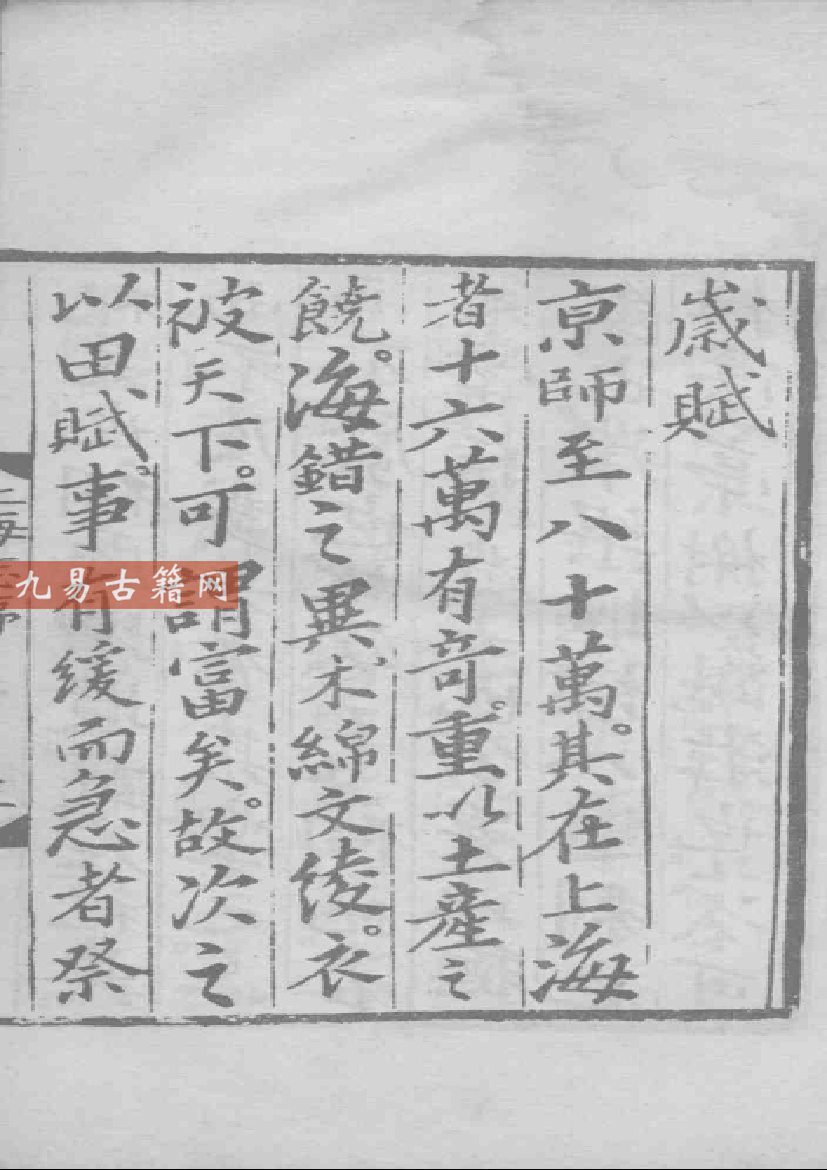 歲賦
京師至八十萬。其在上海
者十六萬有奇。重以土產之
饒。海錯之異木綿文綾。衣
被天下。可謂富矣。故次之
以田賦。事有緩而急者祭
上海
九易古籍网